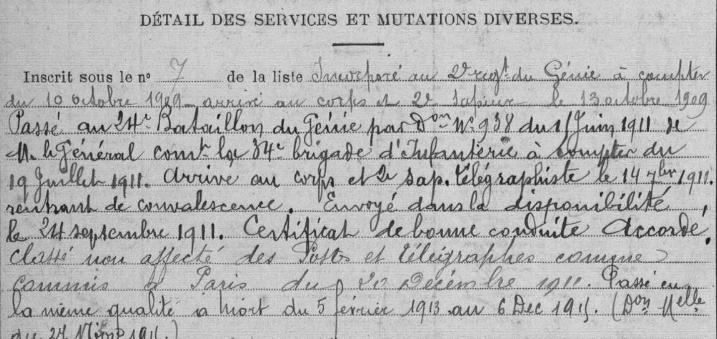 DÉTAIL DES SERVICES ET MUTATIONS DIVERSES.
Inscrit sous le nº 7 de la liste Incorporé au 2e regt du Génie à compter
du 10 octobre 1909 arrivé au corps et 2e Sapeur le 13 octobre 1909
Passé au 24e Bataillon du Génie par Don Nº 938 du 1 Juin 1911 de
M. le Général comt la 34e brigade d'Infanterie à compter du
19 Juillet 1911. Arrivé au corps et 2e sap. télégraphiste le 14 7bre 1911.
rentrant de convalescence. Envoyé dans la disponibilité
le 24 septembre 1911. Certificat de bonne conduite Accordé.
Classé non affecté des Postes et télégraphes comme
commis à Paris du 20 Décembre 1911. Passé en
la même qualité à Niort du 5 février 1913 au 6 Dec 1915. (Don Melle
du 27 1915.)